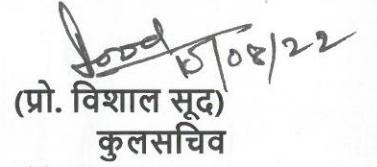 Sood
15/08/22
(प्रो. विशाल सूद)
कुलसचिव